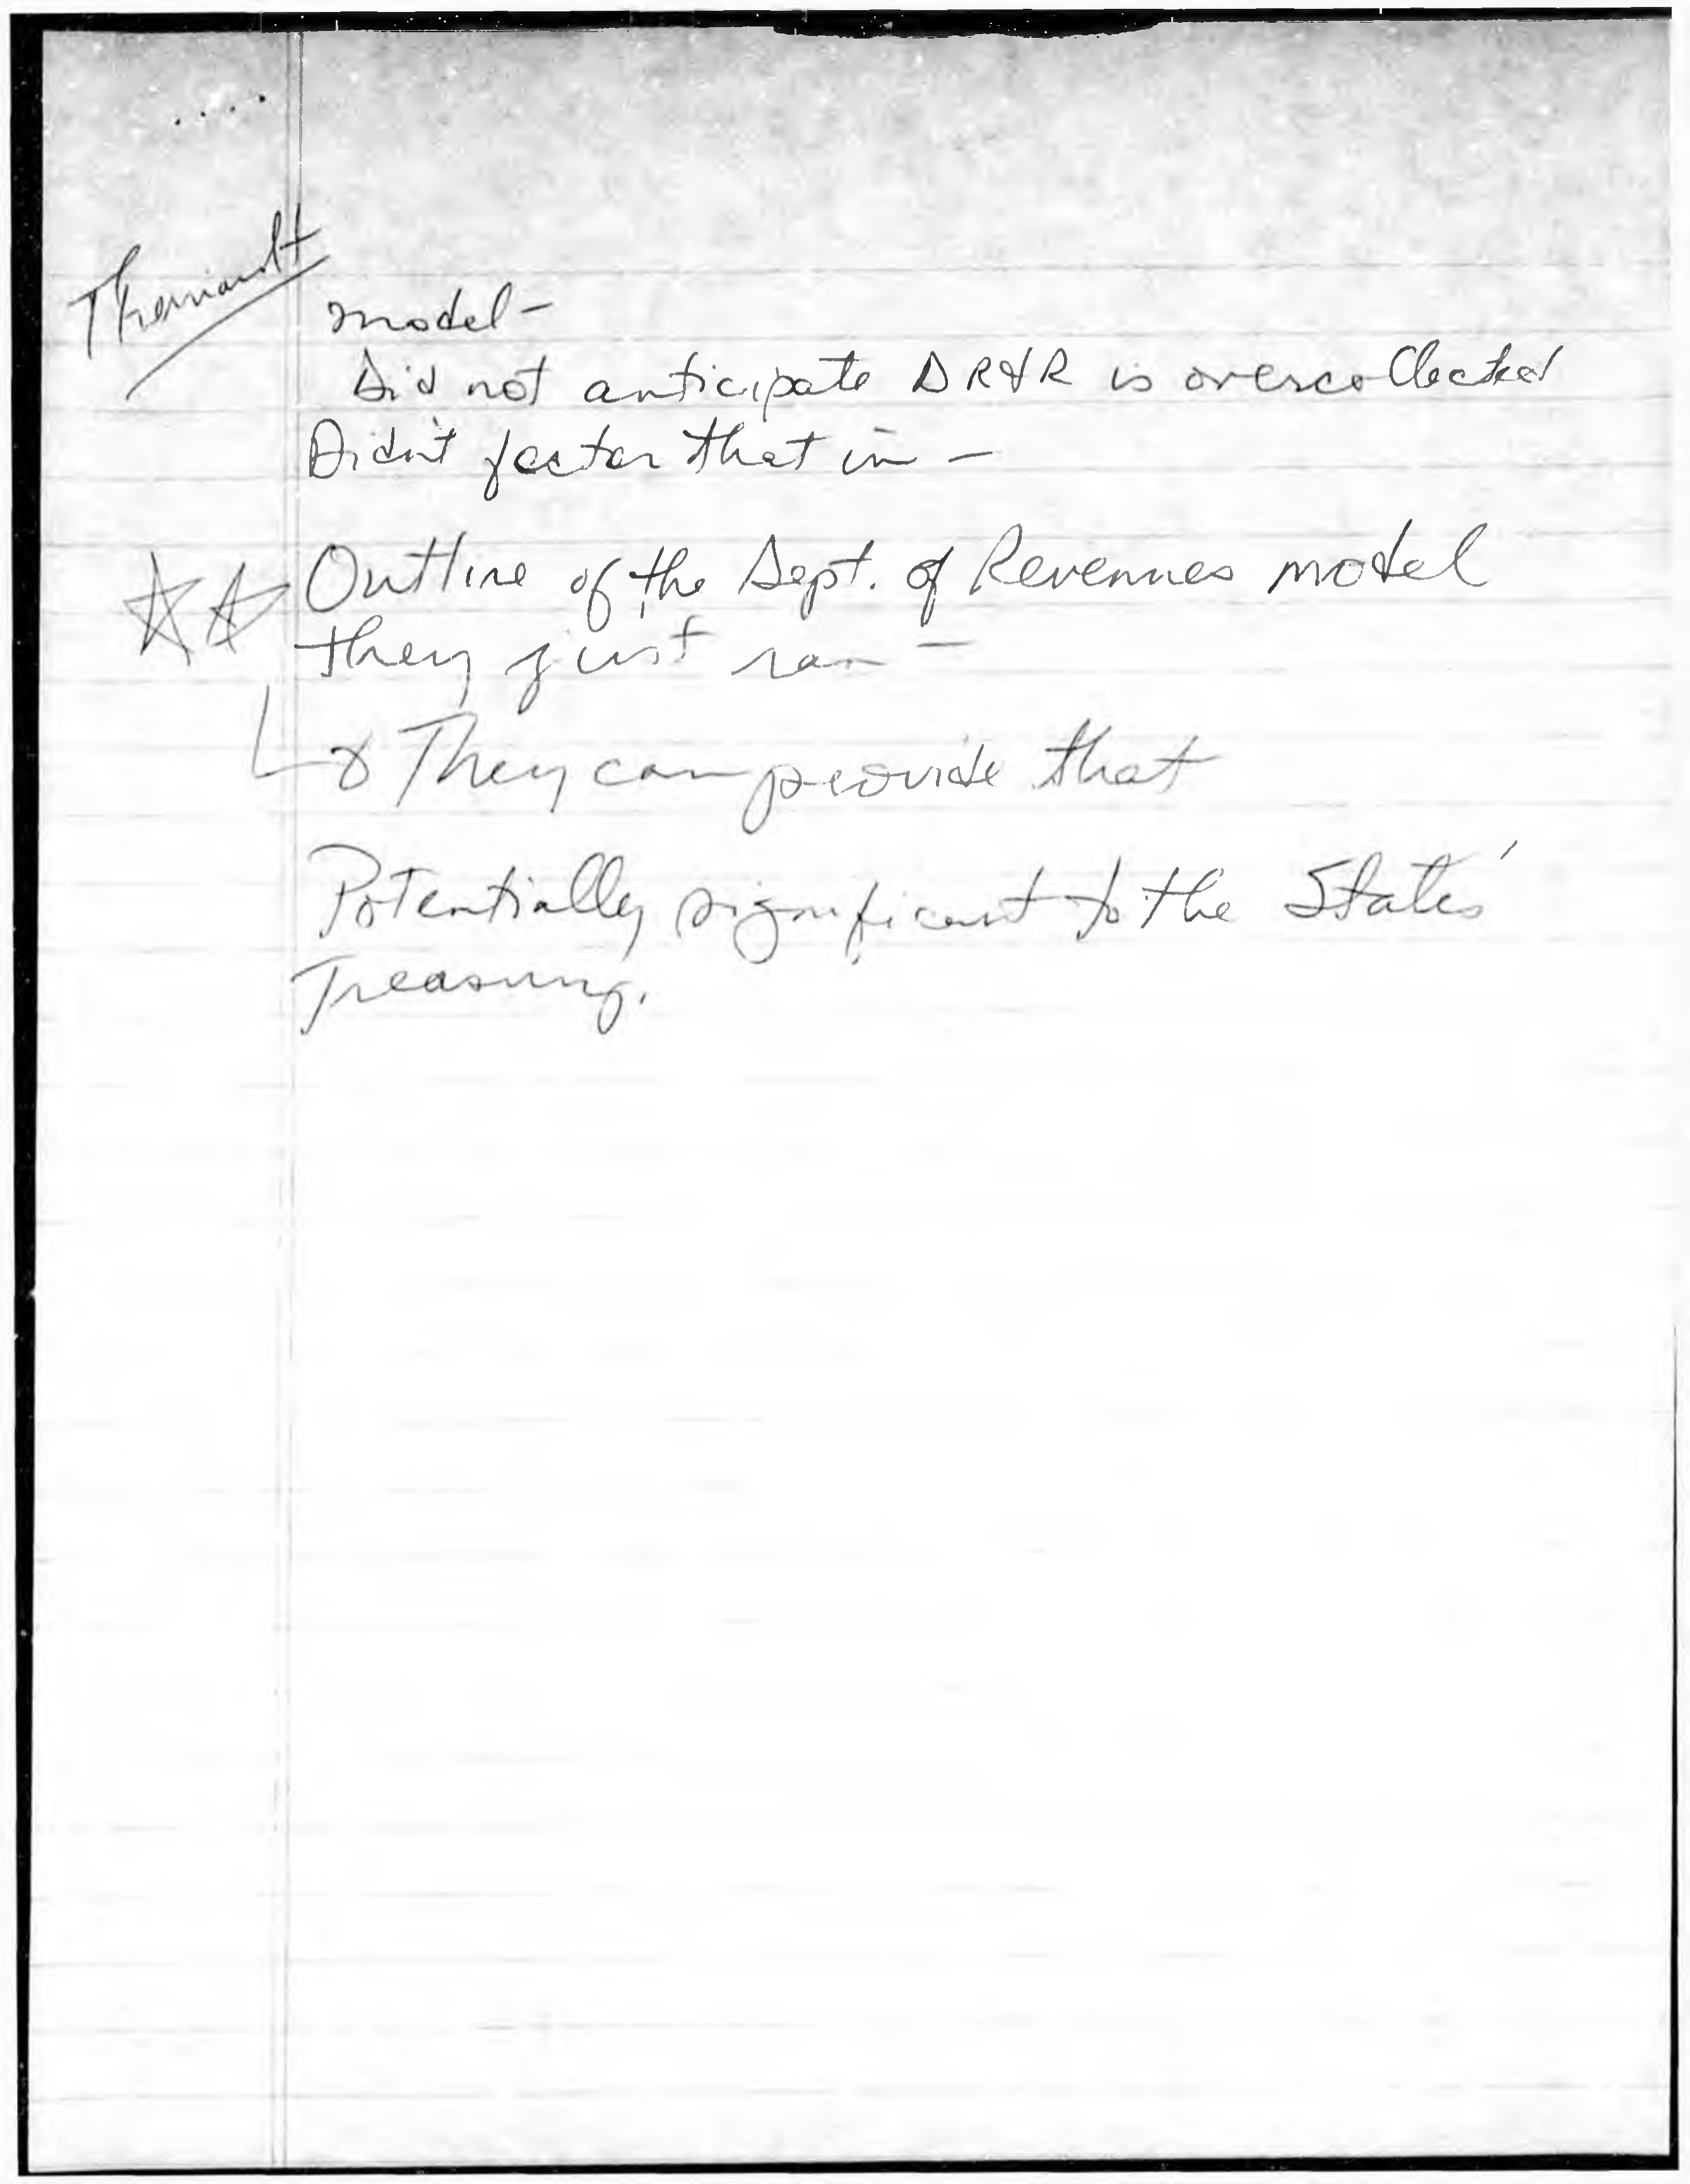 Therriault
model -
Did not anticipate DR&R is overcollected
Didn't factor that in -
Outline of the Dept. of Revenues model
they just ran -
They can provide that
Potentially significant to the States'
Treasury.